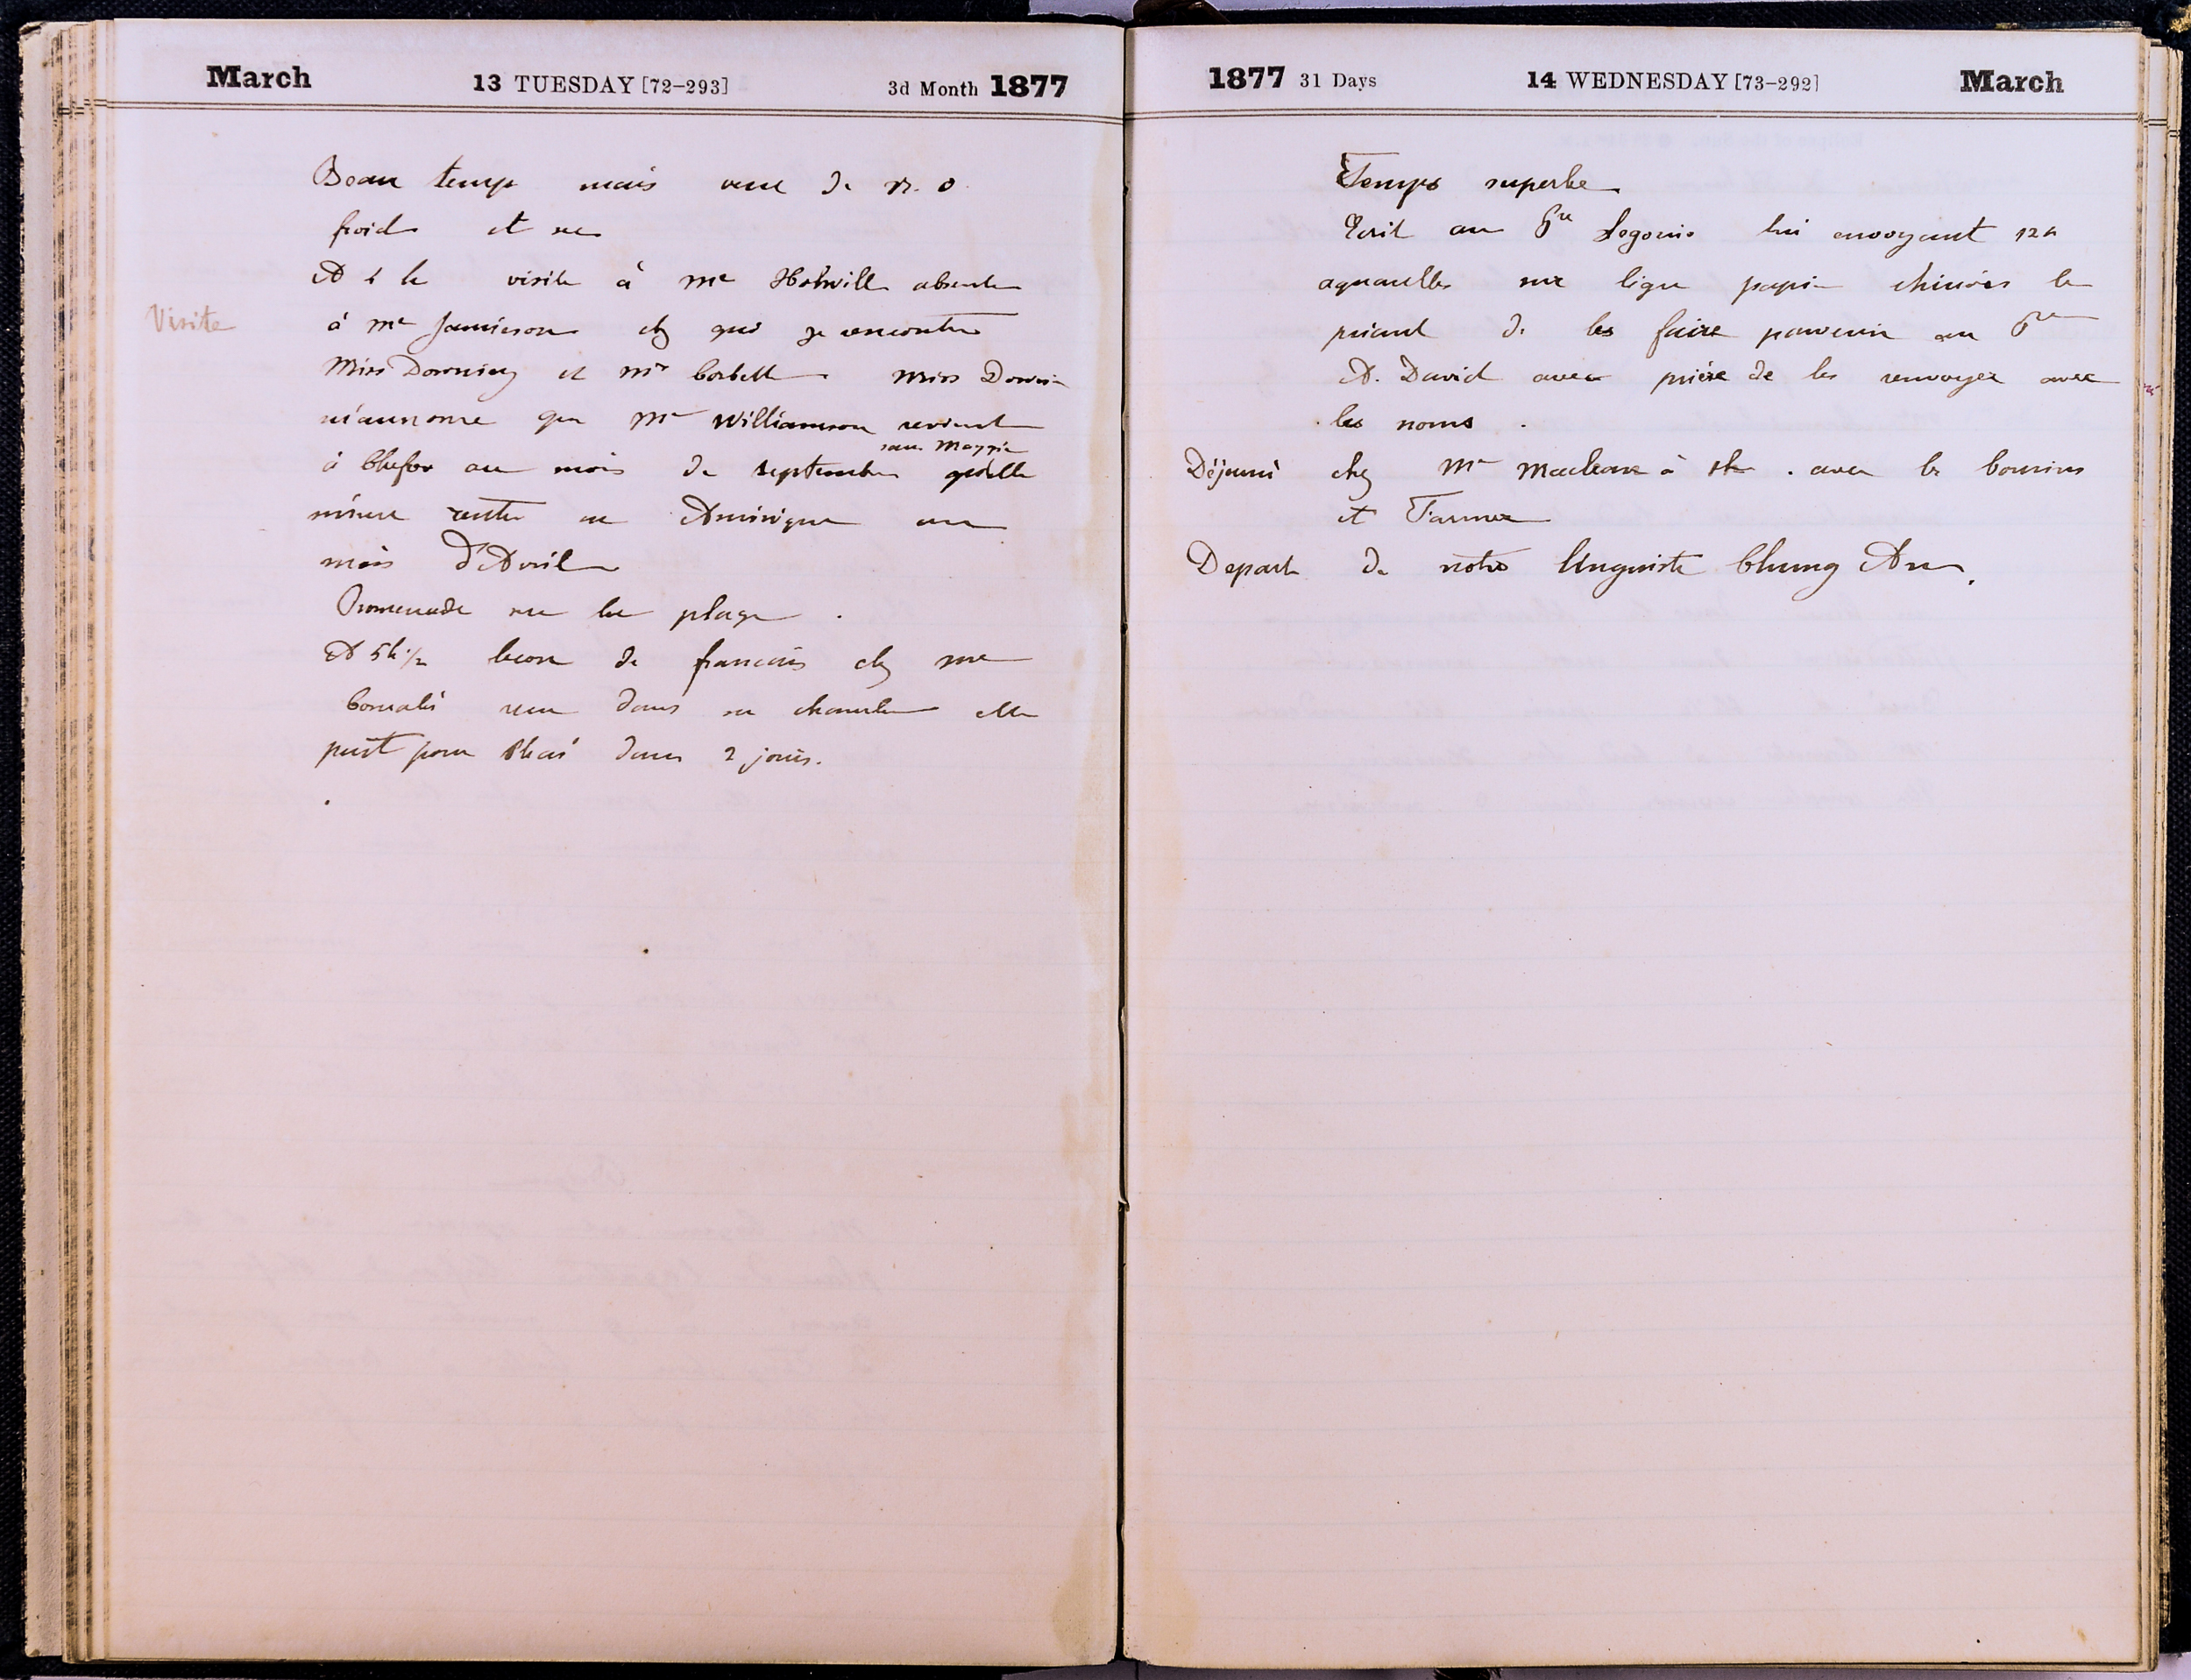 March 13 TUESDAY [72-293] 3d Month 1877
Beau temps mais vent de N. O
froid et sec
A 1 h visite à Me Holwill absente
Visite à Me Jamieson chez qui je rencontre
Miss Downing et Mr Corbett Miss Downin
m'annonce que Mr Williamson revient
sans Maggie
à Chefoo au mois de septembre qu'elle
même rentre en Amérique au
mois d'Avril
Promenade sur la plage .
A 5h 1/2 lecon de francais chez me
reçu dans sa chambre elle
part pour dans 2 jours.
1877 31 Days 14 WEDNESDAY [73-292] March
Temps superbe
Ecrit au Pre Segonis lui envoyant 12
aquarelles sur papier chinois le
priant de les faire parvenir au Pre
A. David avec prière de les renvoyer avec
les noms .
Déjeuné chez Mr Maclean à 1h . avec les
et Farmer
Depart de notre linguiste Chung An.